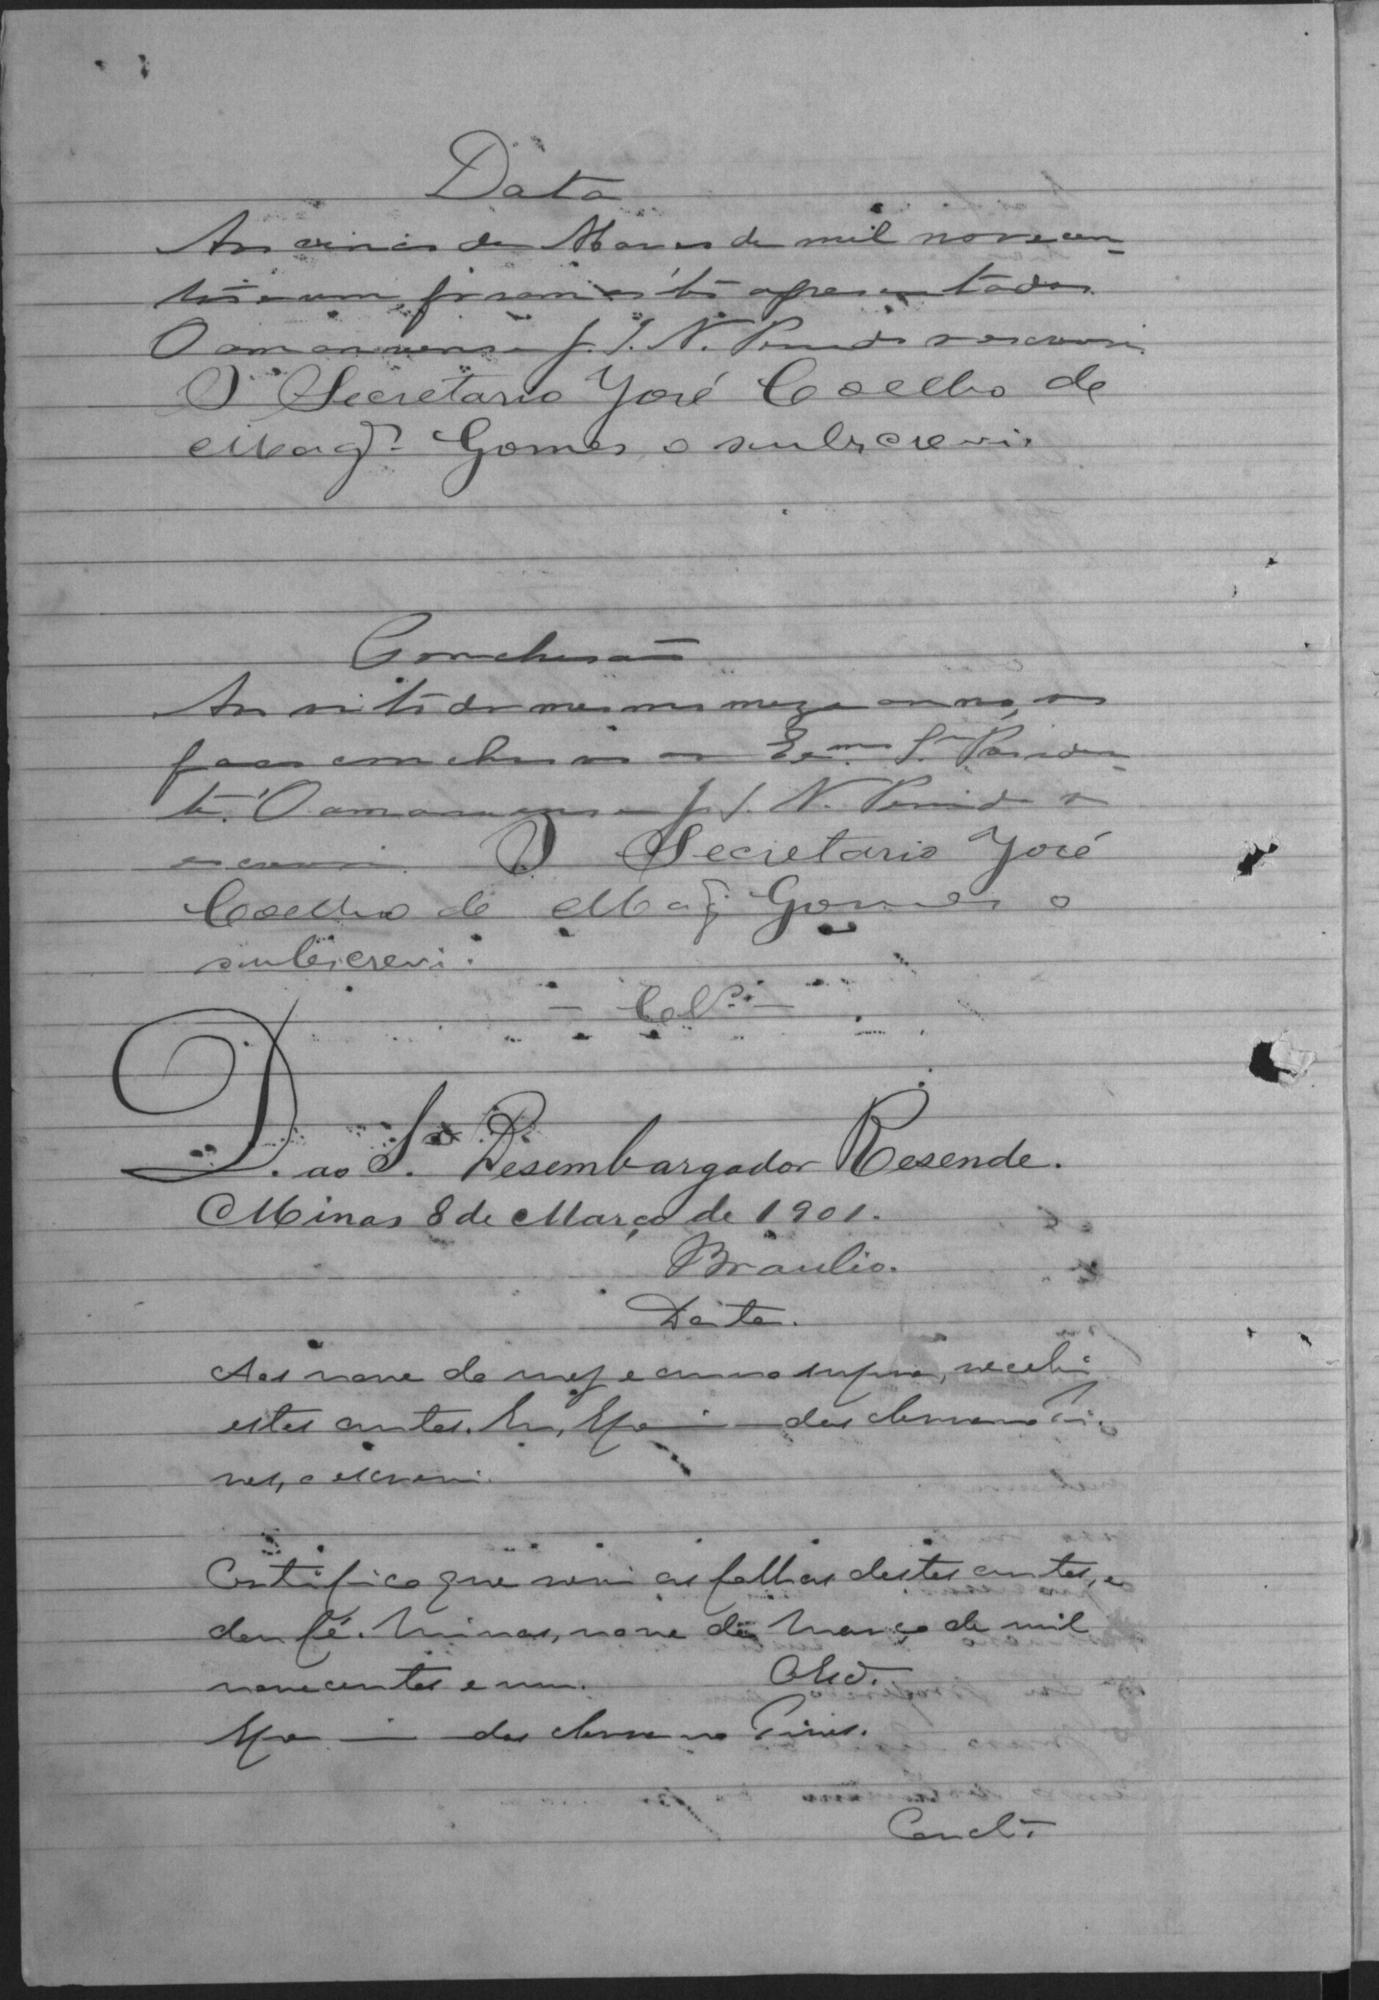 Data
Aos cinco de Março de mil novecen-
tos e um, foram estes apresentados.
O amanuense J. J. N. Penido o escrevi.
O Secretario José Coelho de
Mags. Gomes o subscrevi.
Conclusão
Aos oito do mesmo mez e anno, os
faço conclusos ao Exmo. Sr. Presiden-
te. O amanuense J. J. N. Penido o
escrevi. O Secretario José
Coelho de Mags. Gomes o
subscrevi.
— Cls. —
D. ao Sr. Desembargador Resende.
Minas 8 de Março de 1901.
Braulio.
Data.
Aos nove do mez e anno supra, recebi
estes autos. Eu, de
o escrevi.
Certifico que numerei as folhas destes autos, e
dou fé. Minas, nove de Março de mil
novecentos e um.
Pires.
Concl.